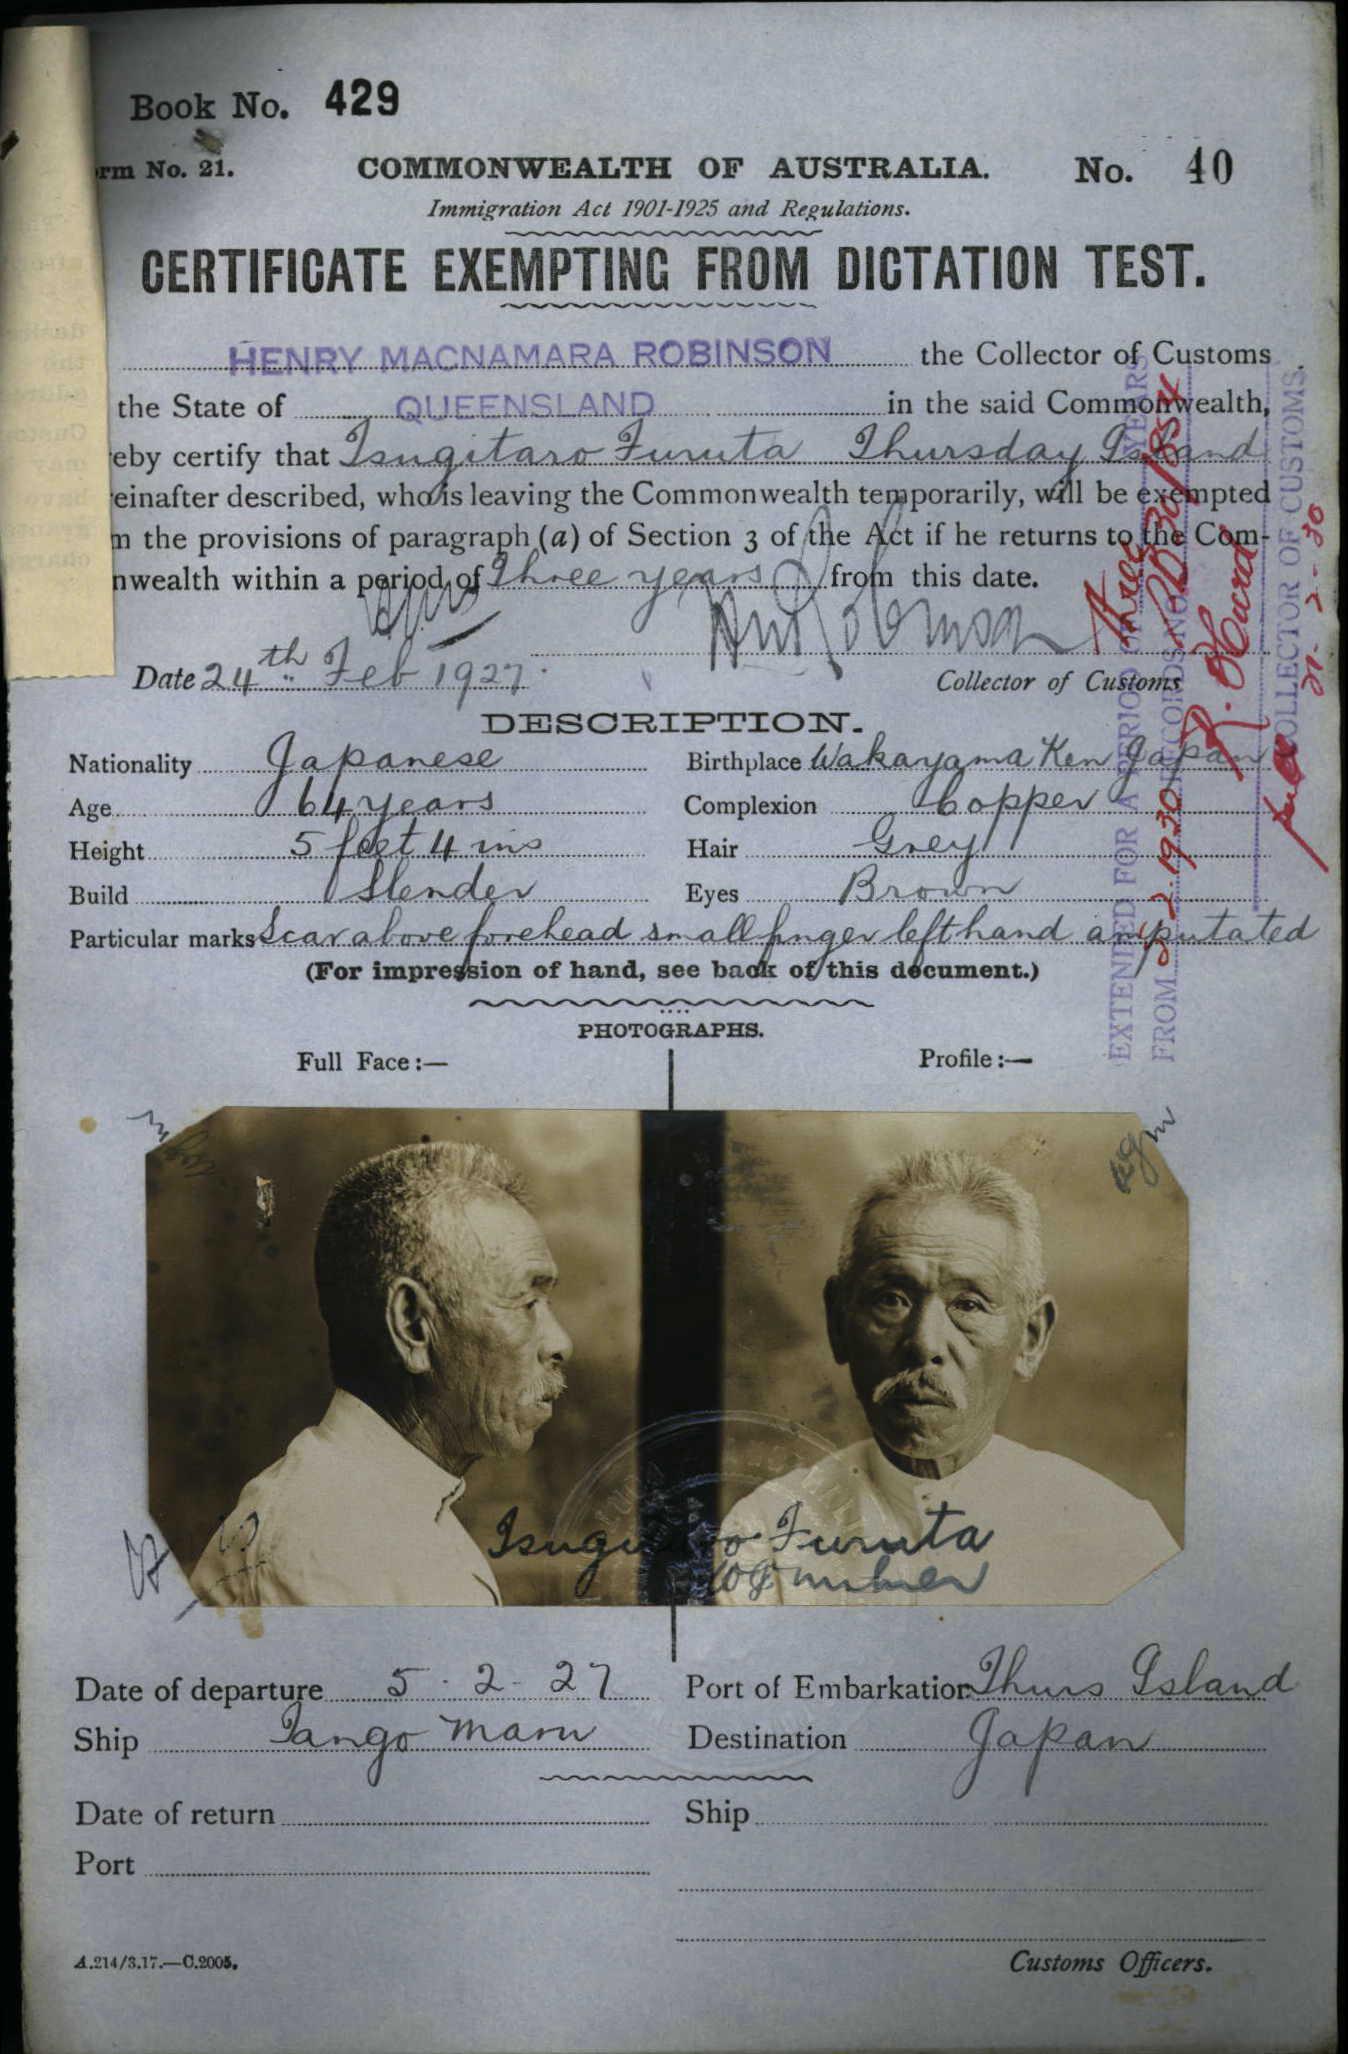 Book No. 429
rm No. 21.
COMMONWEALTH OF AUSTRALIA.
No. 40
Immigration Act 1901-1925 and Regulations.
CERTIFICATE EXEMPTING FROM DICTATION TEST.
HENRY MACNAMARA ROBINSON the Collector of Customs
the State of QUEENSLAND in the said Commonwealth,
eby certify that Tsugitaro Furuta Thursday Island
einafter described, who is leaving the Commonwealth temporarily, will be exempted
m the provisions of paragraph (a) of Section 3 of the Act if he returns to the Com-
nwealth within a period of Three years from this date.
HM Robinson
Date 24th Feb 1927.
Collector of Customs
EXTENDED FOR A PERIOD OF three YEARS
FROM 5.2.1930 RECORDS NO. 30/1854
COLLECTOR OF CUSTOMS.
21-2-30
DESCRIPTION.
Nationality Japanese
Birthplace Wakayama Ken Japan
Age 64 years
Complexion Copper
Height 5 feet 4 ins
Hair Grey
Build Slender
Eyes Brown
Particular marks Scar above forehead small finger left hand amputated
(For impression of hand, see back of this document.)
PHOTOGRAPHS.
Full Face:—
Profile:—
Tsugitaro Furuta
Date of departure 5-2-27
Port of Embarkation Thurs Island
Ship Tango Maru
Destination Japan
Date of return
Ship
Port
A.214/3.17.—C.2005.
Customs Officers.